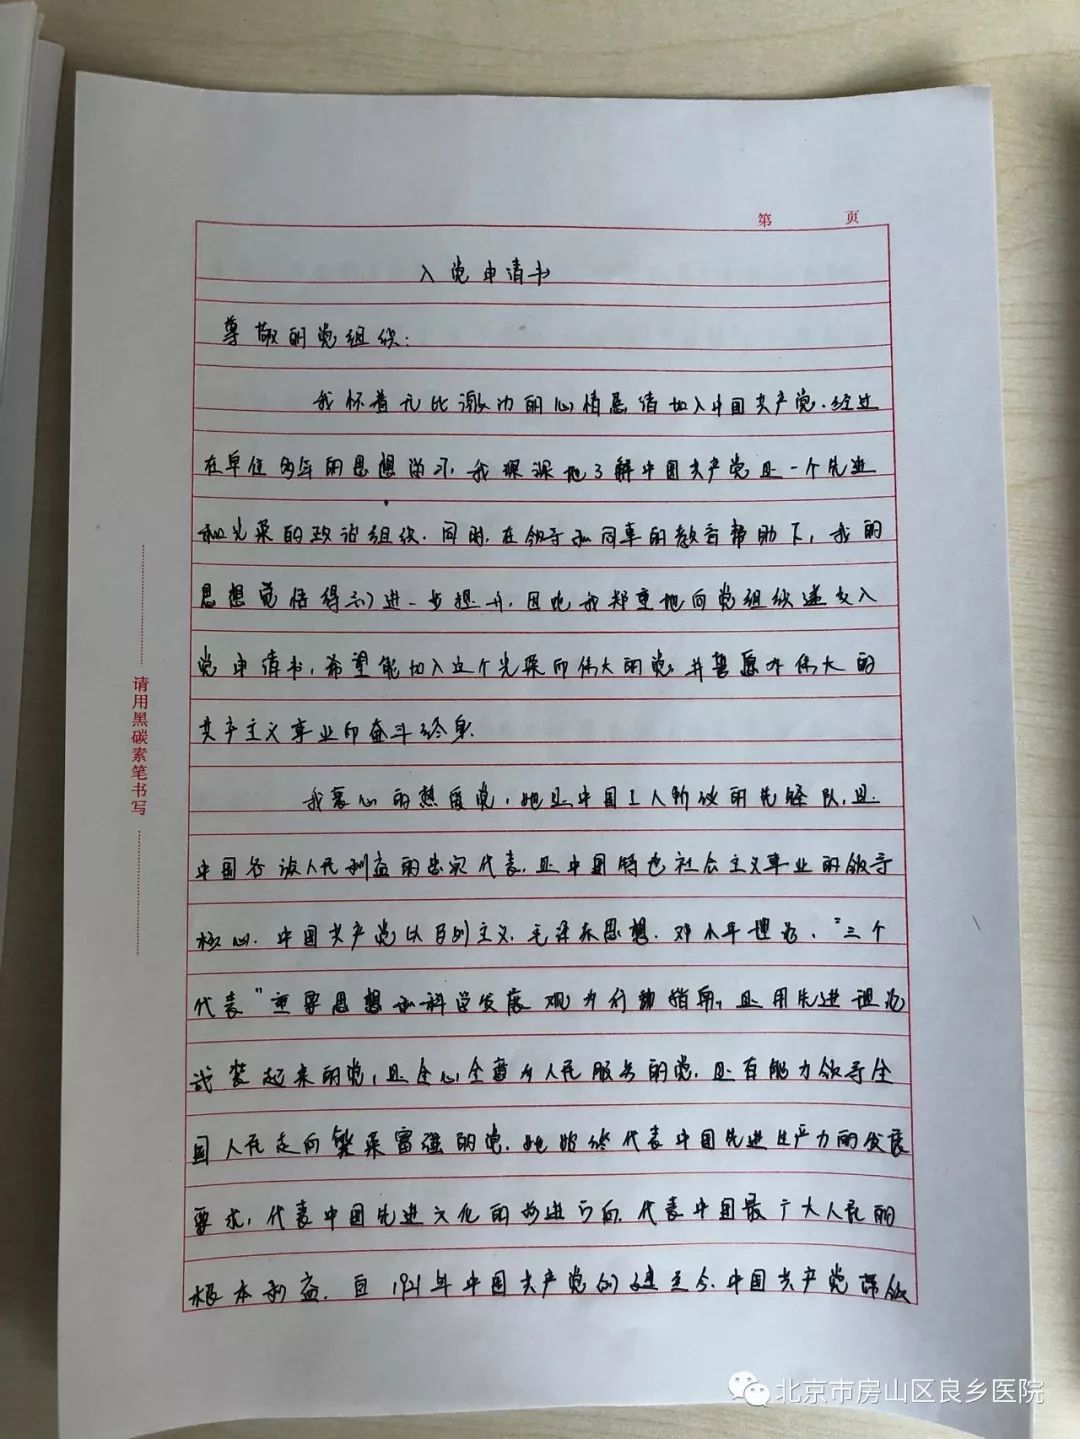 第 页
入党申请书
尊敬的党组织:
我怀着无比激动的心情恳请加入中国共产党.经过
在单位多年的思想学习,我深深地了解中国共产党是一个先进
和光荣的政治组织.同时,在领导和同事的教育帮助下,我的
思想觉悟得到进一步提升,因此我郑重地向党组织递交入
党申请书,希望能加入这个光荣而伟大的党,并誓愿为伟大的
共产主义事业的奋斗终身.
我衷心的热爱党,她是中国工人阶级的先锋队,是
中国各族人民利益的忠实代表,是中国特色社会主义事业的领导
核心.中国共产党以马列主义.毛泽东思想.邓小平理论,“三个
代表”重要思想和科学发展观为行动指南,是用先进理论
武装起来的党,是全心全意为人民服务的党.是有能力领导全
国人民走向繁荣富强的党.她始终代表中国先进生产力的发展
要求,代表中国先进文化的前进方向,代表中国最广大人民的
根本利益.自1921年中国共产党的建至今.中国共产党带领
请用黑碳素笔书写
北京市房山区良乡医院